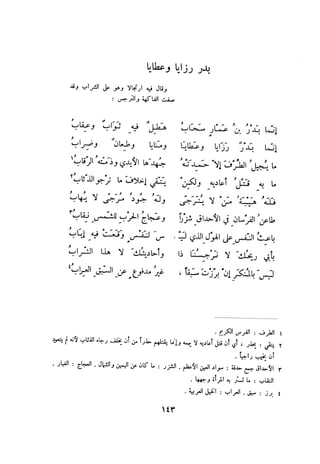 بدر رزايا وعطايا
وقال فيه ارتجالا وهو على الشراب وقد
صفت الفاكهة والنرجس :
إنَّما بَدْرُ بنُ عَمّارٍ سَحَابُ هَطِلٌ فيهِ ثَوَابٌ وعِقَابُ
إنَّما بَدْرٌ رَزايا وعَطايا ومَنايا وطِعانٌ وضِرابُ
ما يُجيلُ الطِّرْفَ إلاّ حَمِدَتْهُ جُهدَها الأيدي وذَمّتهُ الرّقابُ١
ما بهِ قَتْلُ أعاديهِ ولكِنْ يَتّقي إخلافَ ما ترجو الذّئابُ٢
فلَهُ هَيْبَةُ مَنْ لا يُتَرَجّى ولَهُ جُودُ مُرَجّى لا يُهابُ
طاعنُ الفُرْسانِ في الأحداقِ شَزْراً وعَجاجُ الحَرْبِ للشّمسِ نِقابُ٣
باعثُ النّفسِ على الهوْلِ الذي لَيْـ ـسَ لنَفْسٍ وقَعَتْ فيهِ إيابُ
بأبي ريحُكَ لا نَرْجِسُنا ذا وأحاديثُكَ لا هذا الشّرابُ
ليسَ بالمُنكَرِ إنْ بَرّزْتَ سَبقاً ، غيرُ مدفوعٍ عنِ السّبقِ العِرابُ٤
١ الطرف : الفرس الكريم .
٢ يتقي : يحذر ، أي أن قتل أعاديه لا يهمه وإنما يقتلهم حذراً من أن يخلف رجاء الذئاب لأنه لم يتعود
أن يخيب راجياً .
٣ الأحداق جمع حدقة : سواد العين الأعظم . الشزر : ما كان عن اليمين والشمال . العجاج : الغبار .
النقاب : ما تستر به المرأة وجهها .
٤ برز : سبق . العراب : الخيل العربية .
١٤٣